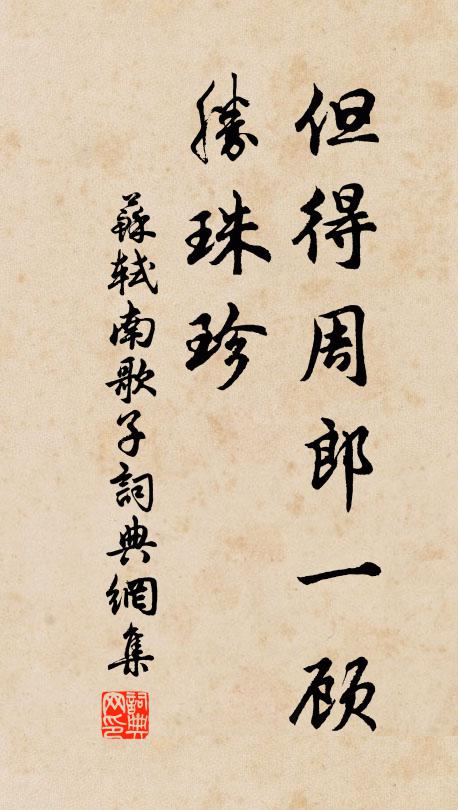 但得周郎一顾
勝珠珍
蘇軾南歌子詞典網集
詞典
网印